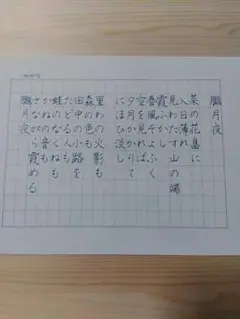 朧月夜
菜の花畠に
入日薄れ
見わたす山の端
霞ふかし
春風そよふく
空を見れば
夕月かかりて
にほひ淡し
里わの火影も
森の色も
田中の小路を
たどる人も
蛙のなくねも
かねの音も
さながら霞める
朧月夜